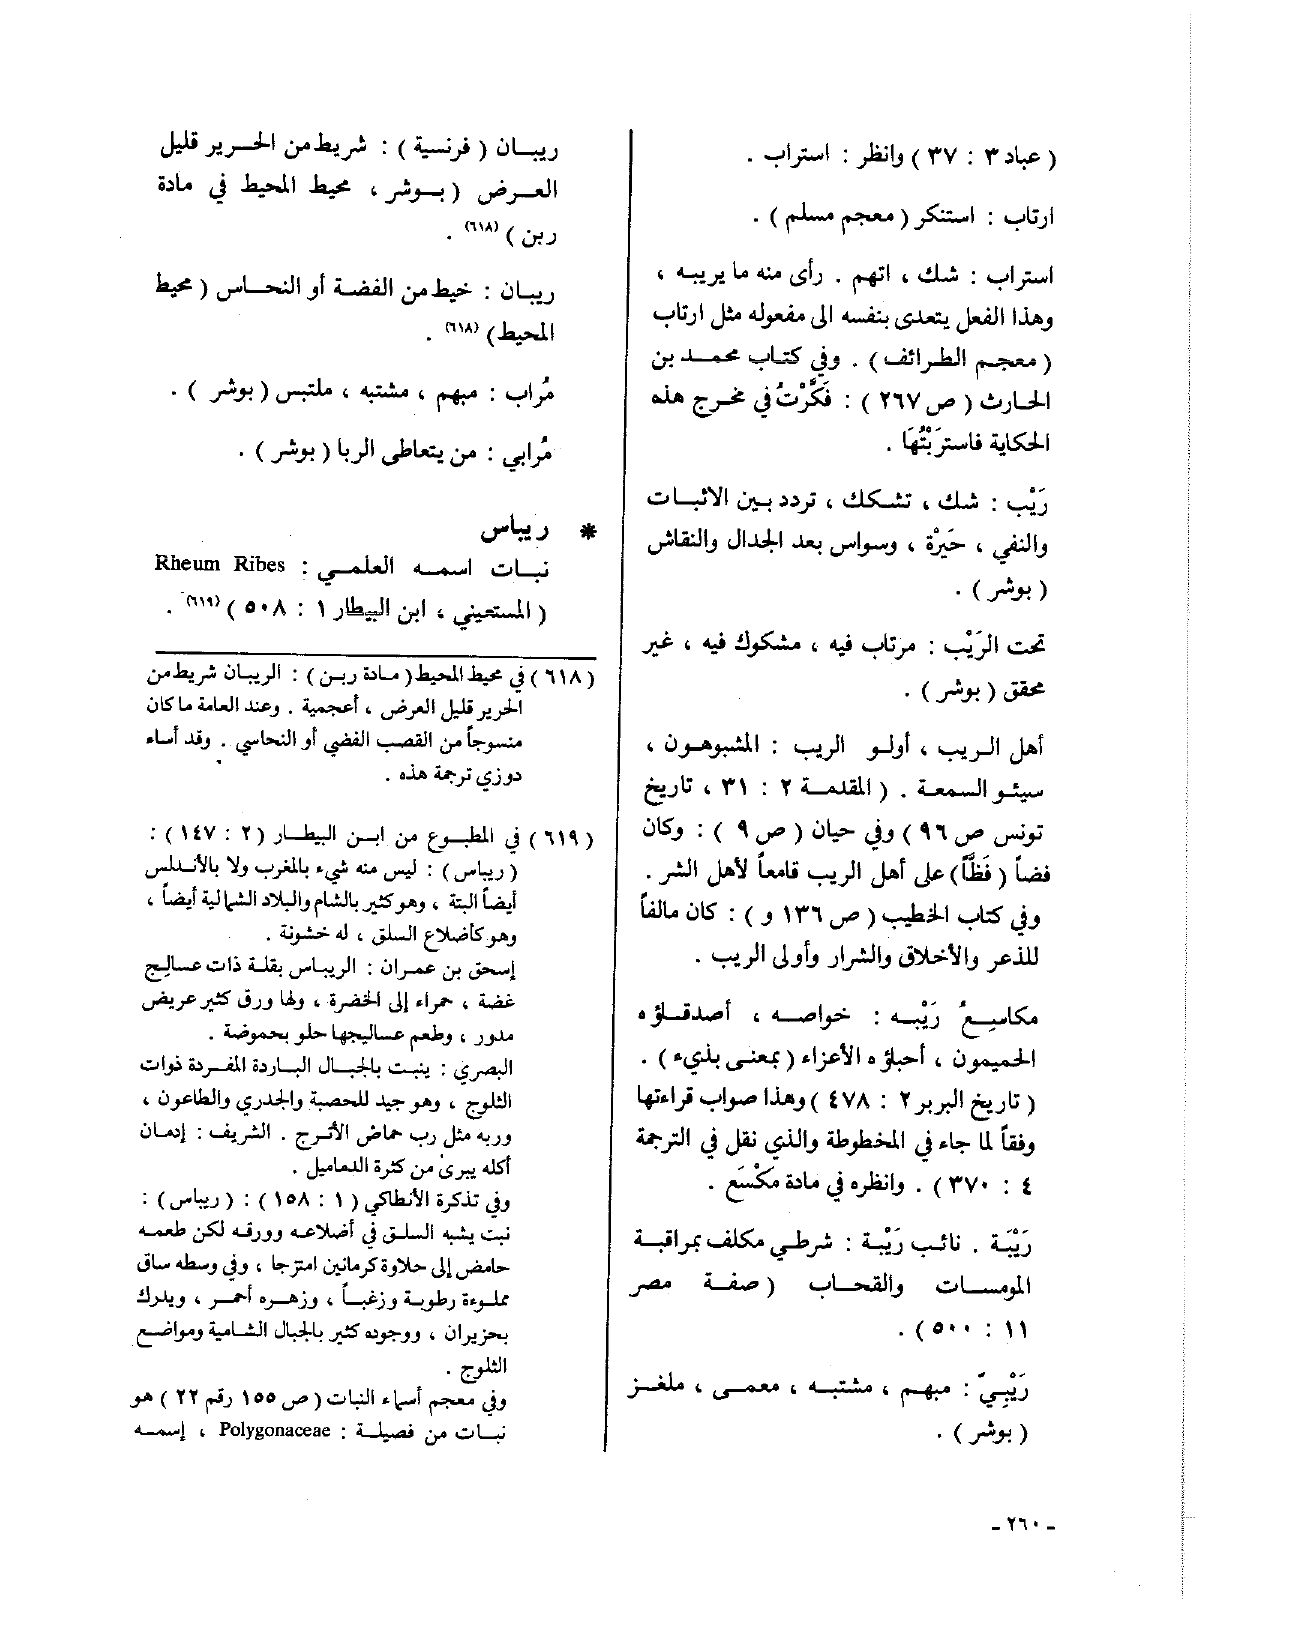 ( عباد ٣ : ٣٧ ) وانظر : استراب .
ارتاب : استنكر ( معجم مسلم ) .
استراب : شك ، اتهم . رأى منه ما يريبه ،
وهذا الفعل يتعدى بنفسه الى مفعوله مثل ارتاب
( معجم الطرائف ) . وفي كتاب محمد بن
الحارث ( ص ٢٦٧ ) : فَكَّرْتُ في مخرج هذه
الحكاية فاسترَبْتُهَا .
رَيْب : شك ، تشكك ، تردد بين الاثبات
والنفي ، حَيْرَة ، وسواس بعد الجدال والنقاش
( بوشر ) .
تحت الرَيْب : مرتاب فيه ، مشكوك فيه ، غير
محقق ( بوشر ) .
أهل الريب ، أولو الريب : المشبوهون ،
سيئو السمعة . ( المقدمة ٢ : ٣١ ، تاريخ
تونس ص ٩٦ ) وفي حيان ( ص ٩ ) : وكان
فضاً ( فَظَّاً ) على أهل الريب قامعاً لأهل الشر .
وفي كتاب الخطيب ( ص ١٣٦ و ) : كان مالفاً
للذعر والأخلاق والشرار وأولى الريب .
مكاسِيعُ رَيْبه : خواصه ، أصدقاؤه
الحميمون ، أحباؤه الأعزاء ( بمعنى بذيء ) .
( تاريخ البربر ٢ : ٤٧٨ ) وهذا صواب قراءتها
وفقاً لما جاء في المخطوطة والذي نقل في الترجمة
٤ : ٣٧٠ ) . وانظره في مادة مَكْسَع .
رَيْبَة . نائب رَيْبة : شرطي مكلف بمراقبة
المومسات والقحاب ( صفة مصر
١١ : ٥٠٠ ) .
رَيْبِيّ : مبهم ، مشتبه ، معمى ، ملغز
( بوشر ) .
ريبان ( فرنسية ) : شريط من الحرير قليل
العرض ( بوشر ، محيط المحيط في مادة
ربن ) (٦١٨) .
ريبان : خيط من الفضة أو النحاس ( محيط
المحيط ) (٦١٨) .
مُراب : مبهم ، مشتبه ، ملتبس ( بوشر ) .
مُرابي : من يتعاطى الربا ( بوشر ) .
* ريباس
نبات اسمه العلمي : Rheum Ribes
( المستعيني ، ابن البيطار ١ : ٥٠٨ ) (٦١٩) .
( ٦١٨ ) في محيط المحيط ( مادة ربن ) : الريبان شريط من
الحرير قليل العرض ، أعجمية . وعند العامة ما كان
منسوجاً من القصب الفضي أو النحاسي . وقد أساء
دوزي ترجمة هذه .
( ٦١٩ ) في المطبوع من ابن البيطار ( ٢ : ١٤٧ ) :
( ريباس ) : ليس منه شيء بالمغرب ولا بالأندلس
أيضاً البتة ، وهو كثير بالشام والبلاد الشمالية أيضاً ،
وهو كأضلاع السلق ، له خشونة .
إسحق بن عمران : الريباس بقلة ذات عساليج
غضة ، حمراء إلى الخضرة ، ولها ورق كثير عريض
مدور ، وطعم عساليجها حلو بحموضة .
البصري : ينبت بالجبال الباردة المفردة ذوات
الثلوج ، وهو جيد للحصبة والجدري والطاعون ،
وربه مثل رب حماض الأترج . الشريف : إدمان
أكله يبرئ من كثرة الدماميل .
وفي تذكرة الأنطاكي ( ١ : ١٥٨ ) : ( ريباس ) :
نبت يشبه السلق في أضلاعه وورقه لكن طعمه
حامض إلى حلاوة كرمانين امتزجا ، وفي وسطه ساق
مملوءة رطوبة وزغباً ، وزهره أحمر ، ويدرك
بحزيران ، ووجوده كثير بالجبال الشامية ومواضع
الثلوج .
وفي معجم أسماء النبات ( ص ١٥٥ رقم ٢٢ ) هو
نبات من فصيلة : Polygonaceae ، إسمه
- ٢٦٠ -